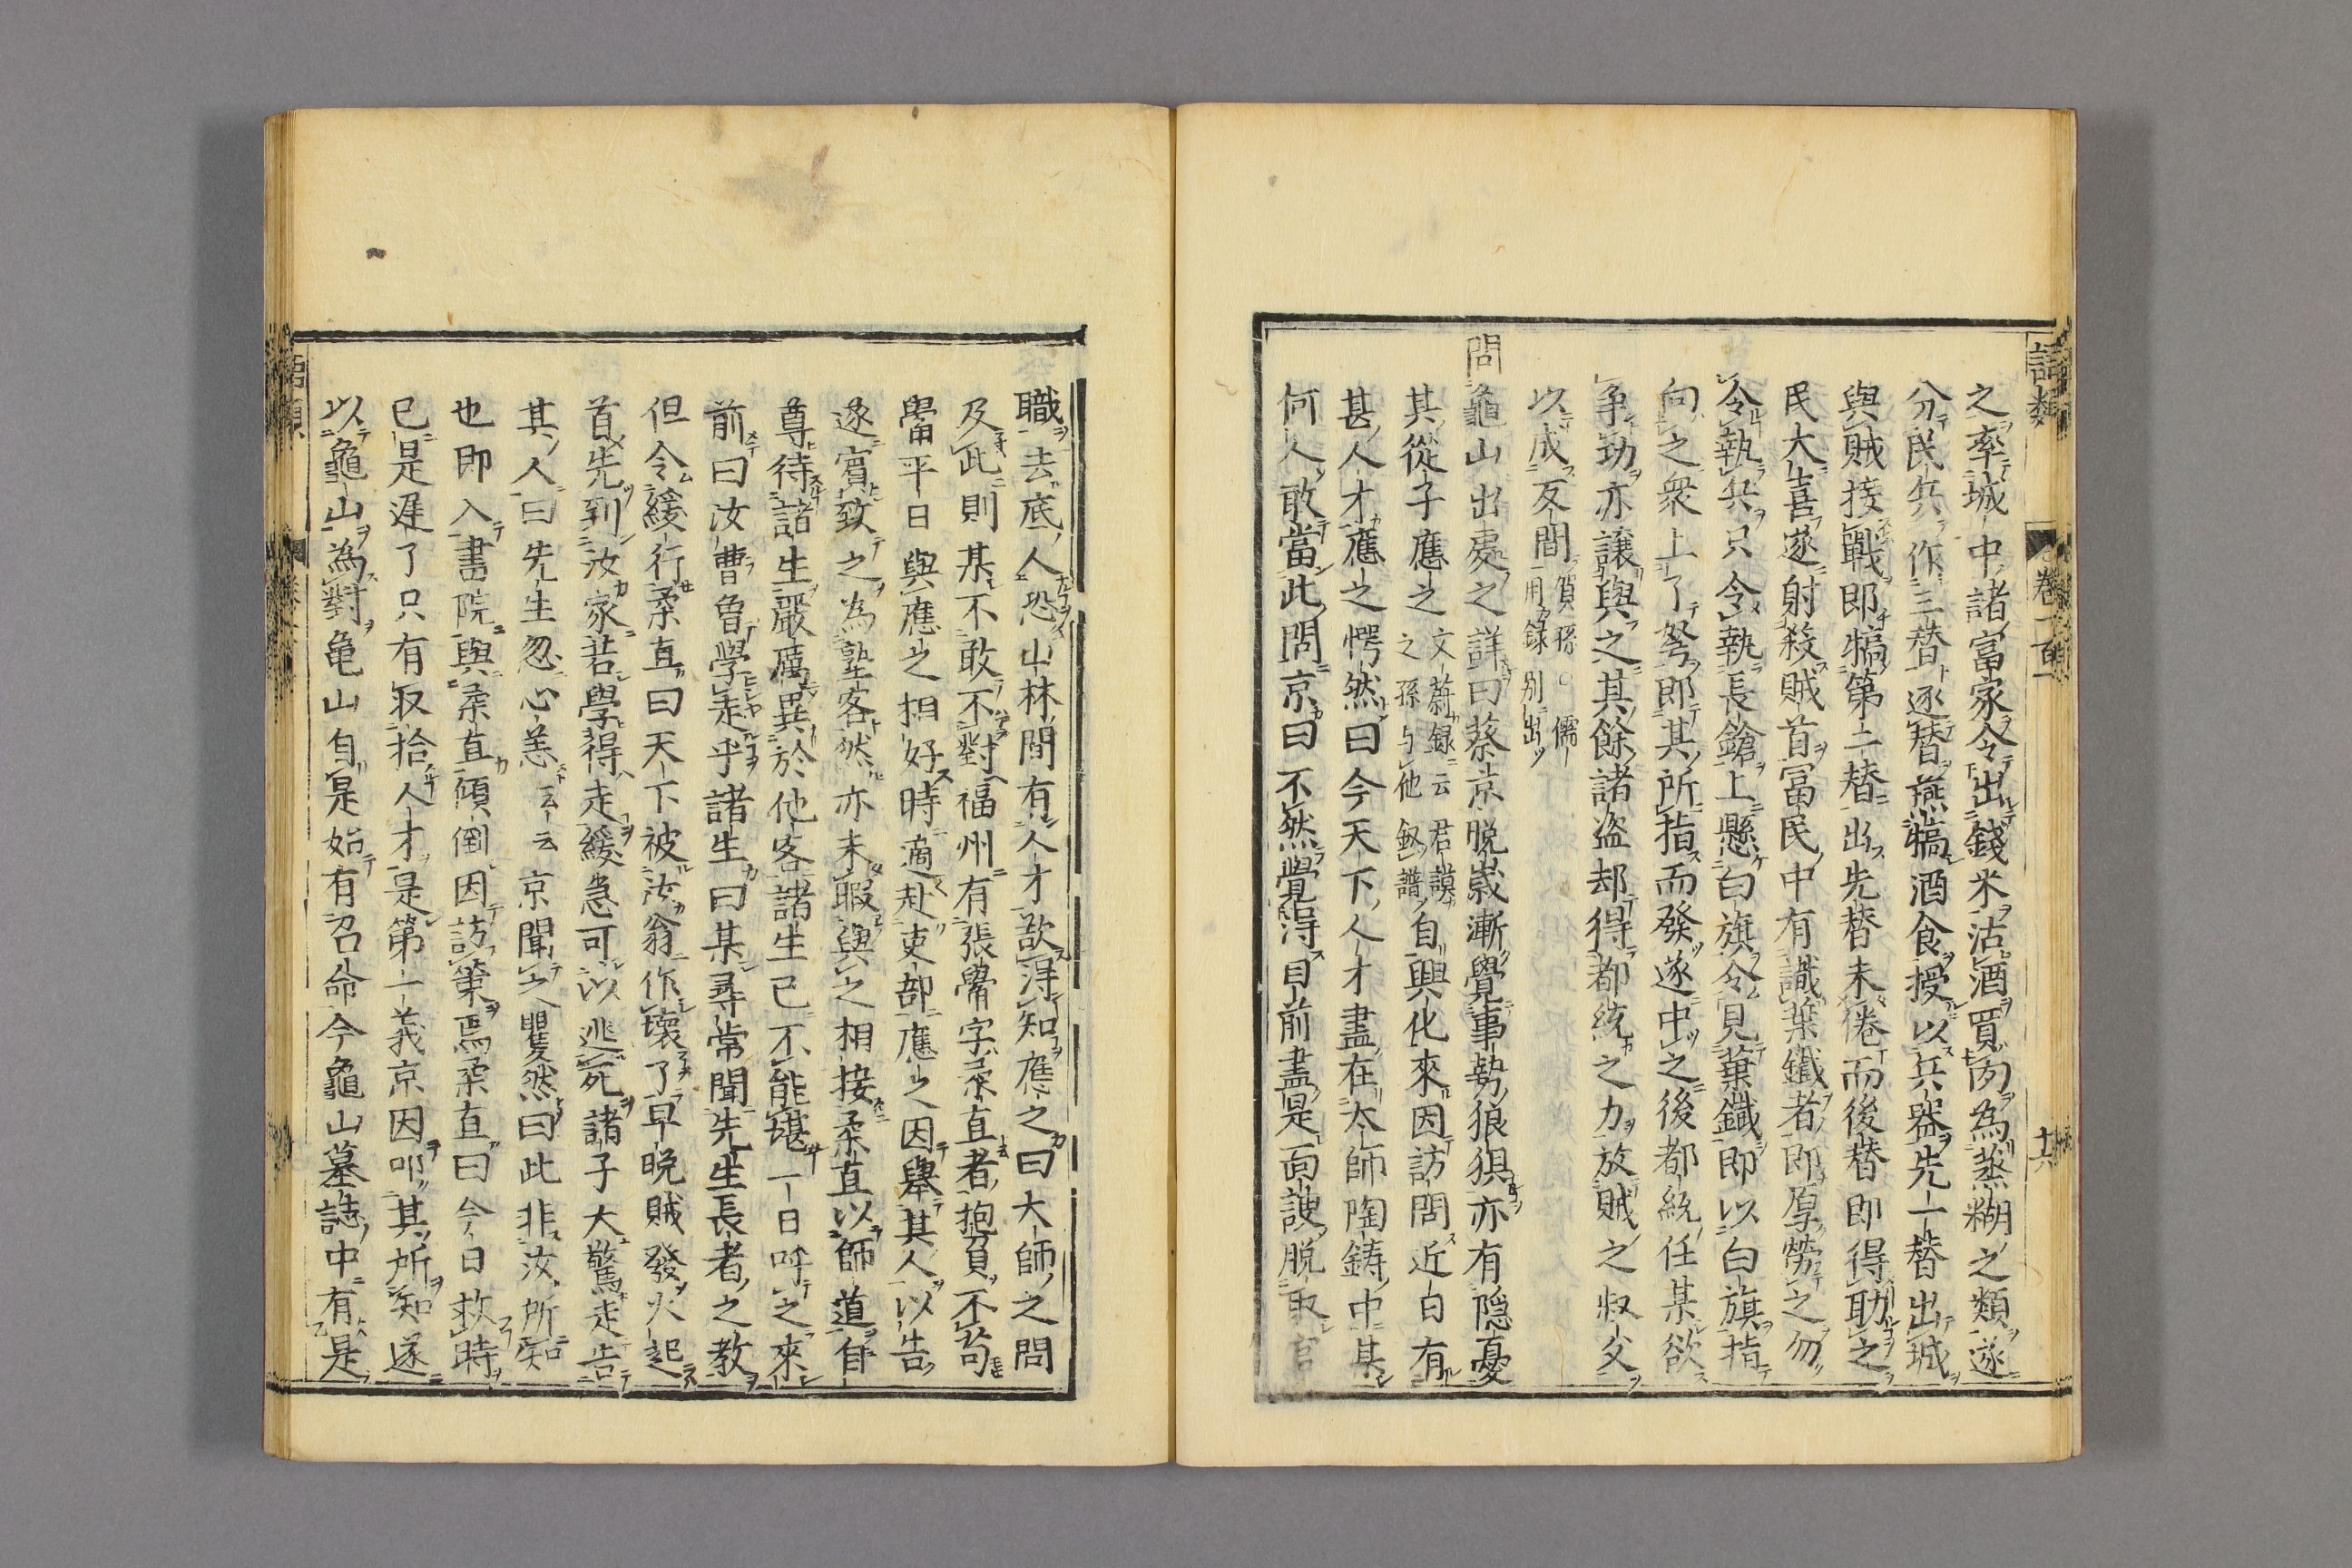 語類
卷一百一
十六
之率城中諸富家令出錢米沽酒買肉為蒸糊之類遂
分民兵作三替逐替燕犒酒食授以兵器先一替出城
與賊接戰即犒第二替出先替未倦而後替即得助之
民大喜遂射殺賊首富民中有識葉鐵者即厚勞之勿
令執兵只令執長鎗上懸白旗令見葉鐵即以白旗指
向之衆上了弩即其所指而發遂中之後都統任某欲
争功亦讓與之其餘諸盜却得都統之力放賊之叔父
以成反間賀孫○儒用錄別出
問龜山出處之詳曰蔡京脫嵗漸覺事勢狼狽亦有隱憂
其從子應之文蔚録云君謨之孫与他叙譜自興化來因訪問近日有
甚人才應之愕然曰今天下人才盡在太師陶鋳中某
何人敢當此問京曰不然覺得目前盡是面諛脱取官
職去底人恐山林間有人才欲淂知應之曰大師之問
及此則某不敢不對福州有張觷字柔直者抱負不苟
觷平日與應之相好時適赴吏部應之因舉其人以告
遂賓致之為塾客然亦未暇與之相接柔直以師道自
尊待諸生嚴厲異於他客諸生已不能堪一日呼之來
前曰汝曹曾學走乎諸生曰某尋常聞先生長者之教
但令緩行柔直曰天下被汝翁作壊了早晩賊發火起
首先到汝家若學得走緩急可以逃死諸子大驚走告
其人曰先生忽心恙云云京聞之矍然曰此非汝所知
也即入書院與柔直傾倒因訪策焉柔直曰今日救時
已是遲了只有収拾人才是第一義京因叩其所知遂
以龜山為對亀山自是始有召命今龜山墓誌中有是
語類